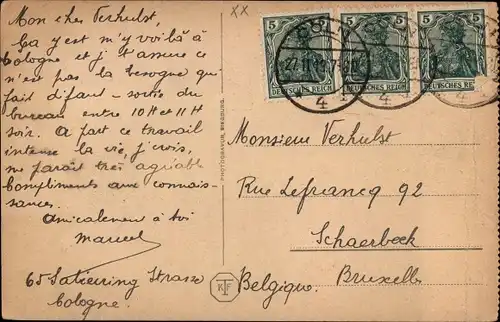 Mon cher Verhulst,
Ça y est m'y voilà à
Cologne et j't'assure ce
n'est pas la besogne qui
fait défaut - sortie du
bureau entre 10H et 11H
soir. A part ce travail
intense la vie, j'crois,
me paraît très agréable
Compliments aux connais-
sances.
Amicalement à toi
Marcel
65 Strasse
Cologne.
PHOTOGRAVUR, SIEGBURG.
xx
5 5
5 5
5 5
DEUTSCHES REICH
DEUTSCHES REICH
DEUTSCHES REICH
CÖLN
4
4
Monsieur Verhulst
Rue Lefrancq 92
Schaerbeek
Bruxelles
Belgique.